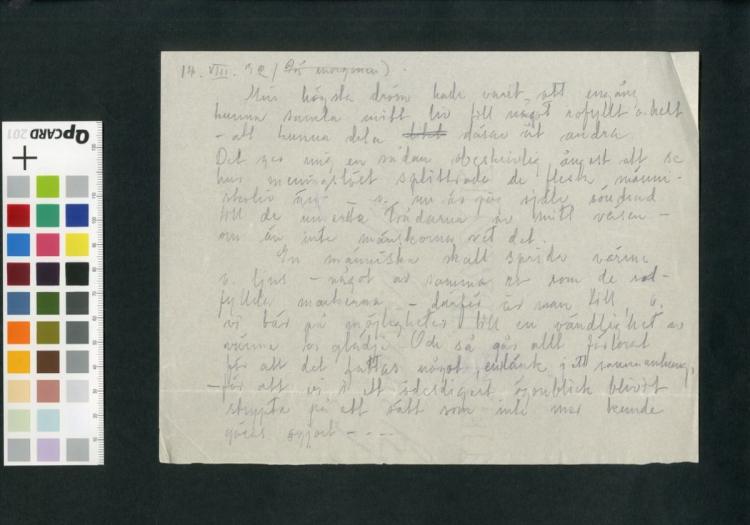 QPCARD 201
14. VIII. 32 ( På morgonen ) .
Min högsta dröm hade varit, att engång
kunna samla mitt liv till något rofyllt o. helt
– att kunna dela dåsan åt andra
Det ger mig en sådan obeskrivlig ångest att se
hur meningslöst splittrade de flesta männi-
skoliv äro – o. nu är jag själv söndrad
till de innersta trådarna av mitt väsen –
om än inte mänskorna vet det.
En människa skall sprida värme
o. ljus – något av samma art som de
fyllda markerna – därför är man till, o.
vi bär på möjligheter till en oändlighet av
värme o. glädje. Och så går allt förlorat
för att det fattas något enlänk i ett sammanhang,
– för att vi i ett ödesdigert ögonblick blivit
strypta på ett sätt som inte mer kunde
göras ogjort – – – –